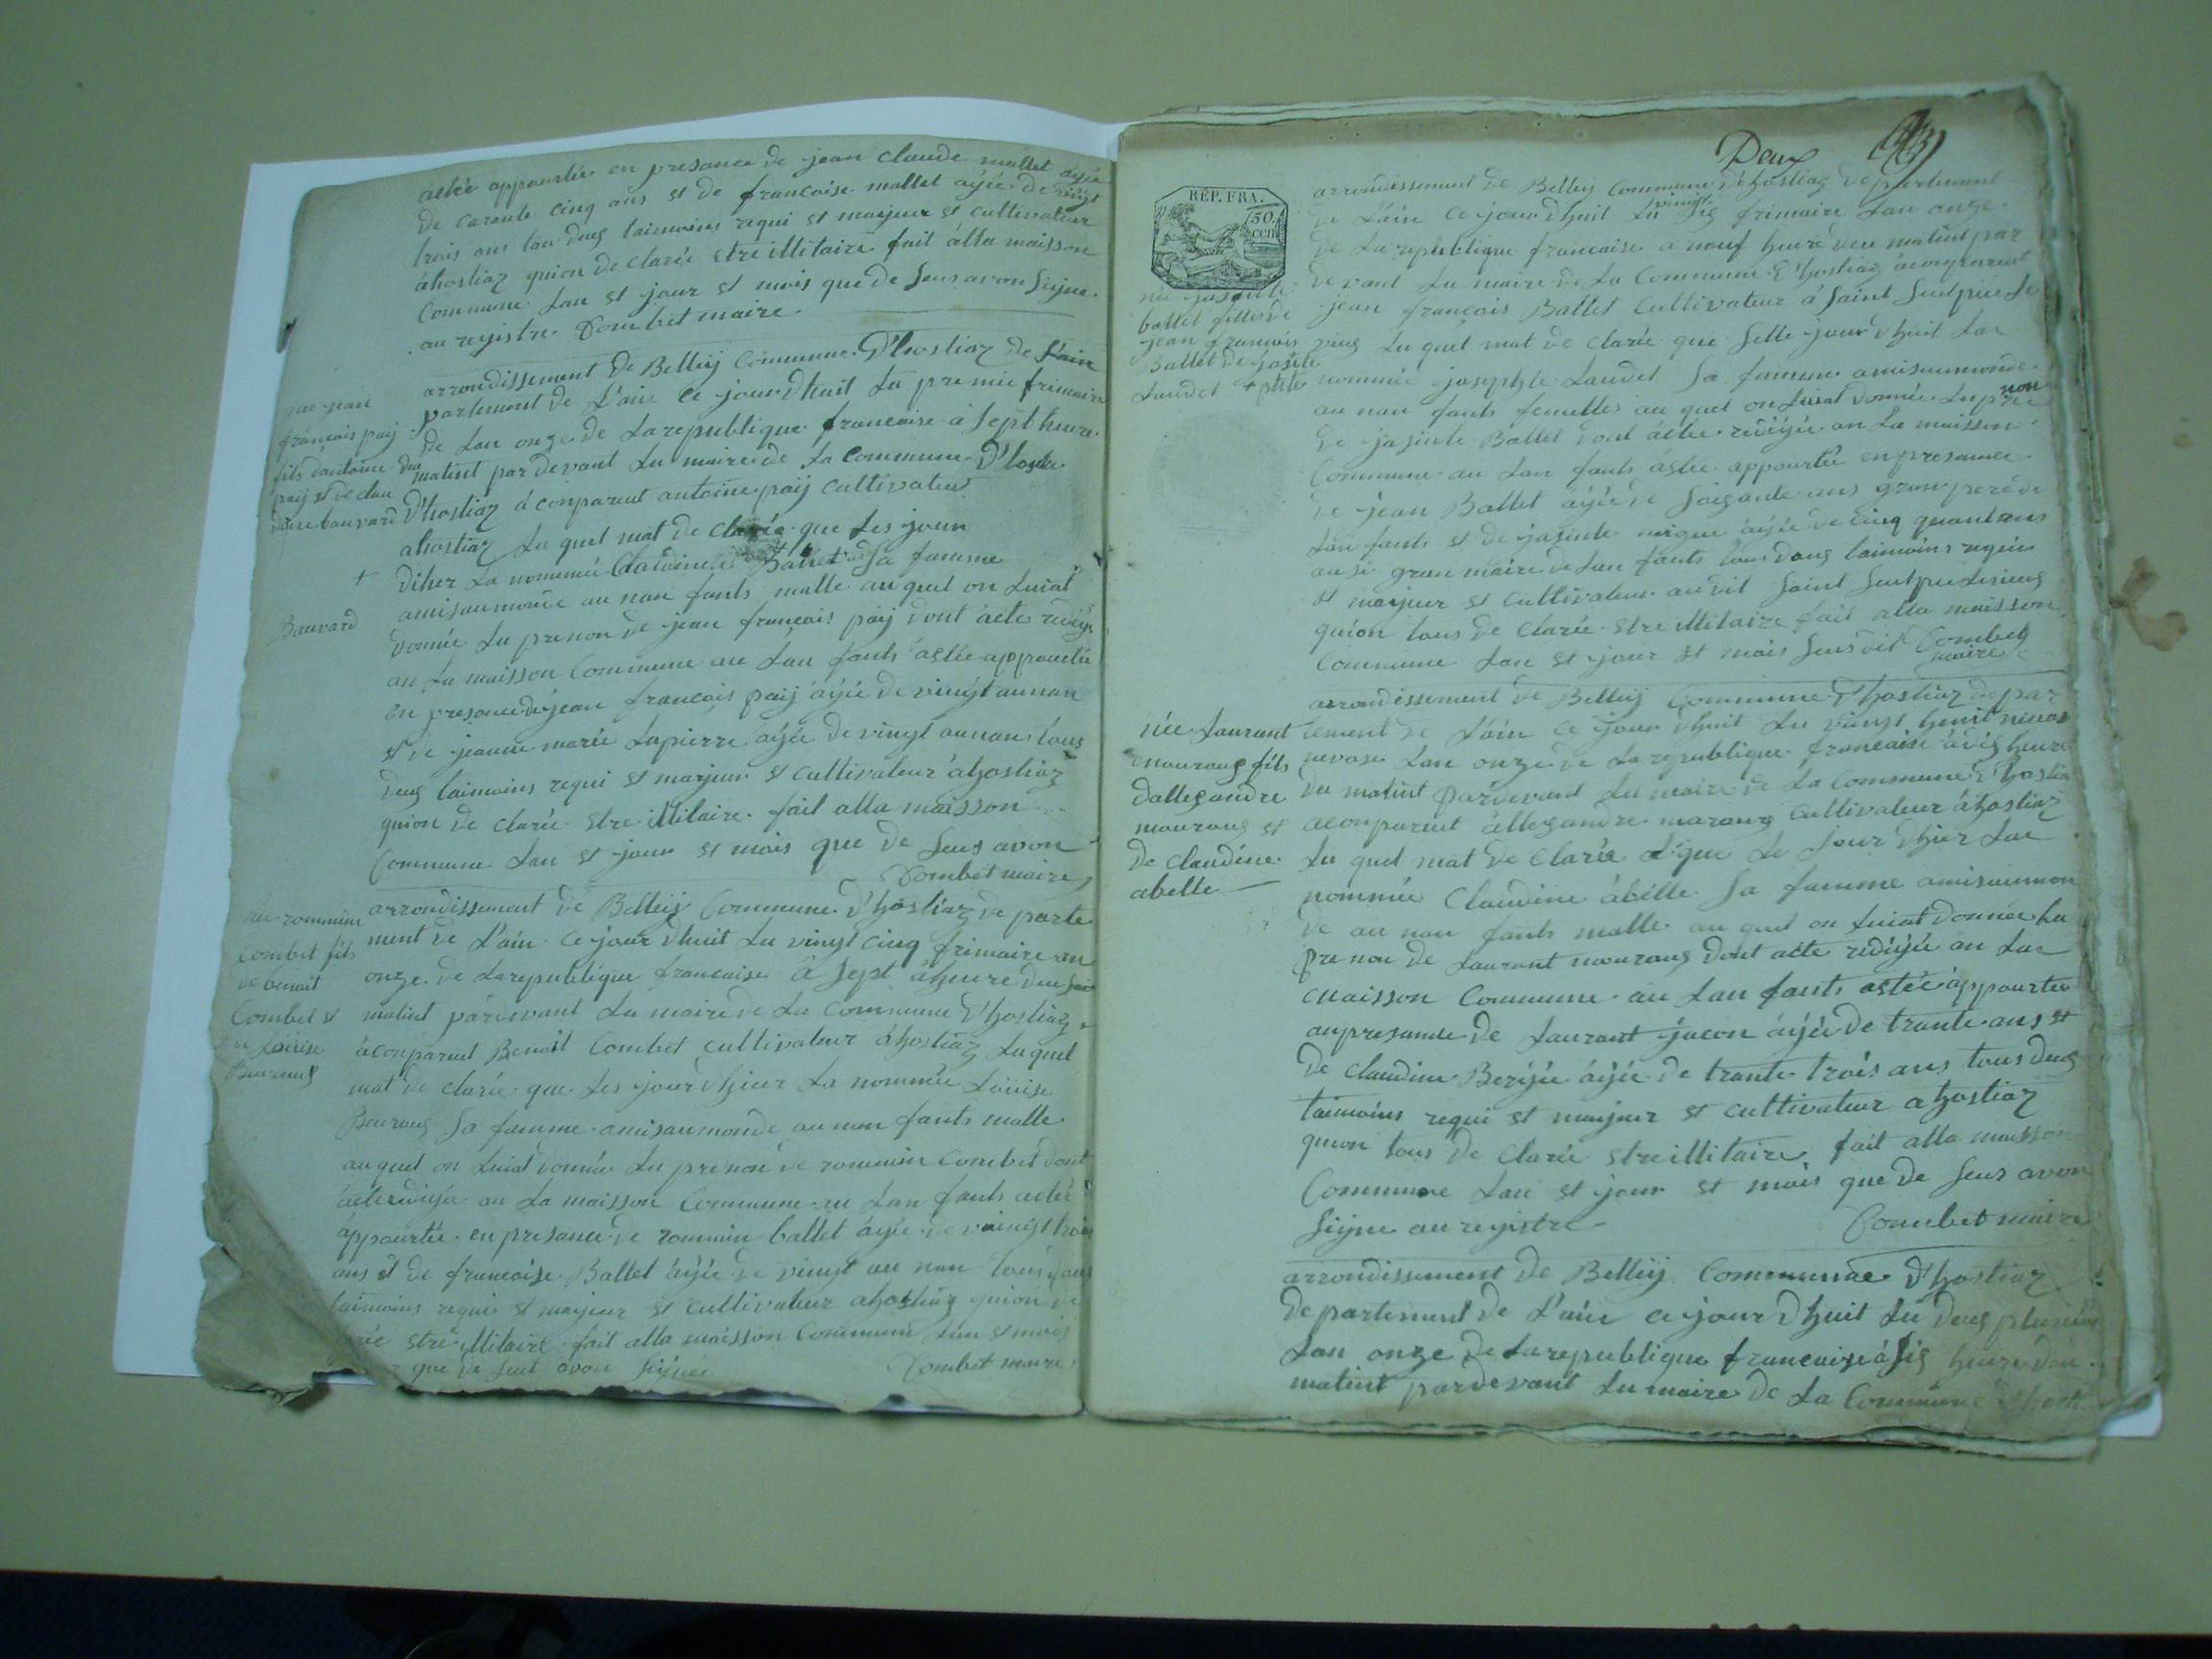 actée appourtée en presance de jean claude mallet ayée
de caronte cinq ans st de francoise mallet ayée de vingt
trois ans tau deus taimoins requi st majeur st cultivateur
áhostiaz quion de clarée stre illitaire fait álla maisson
Commune lan st jour st mois que de seus avon signe
au registre Combet maire
arrondissement de Belleij Commune D'hostiaz de L'ain
partement de L'ain ce jour dhuit lu premie frimaire
de lan onze de la republique francaise à sept heure
matint par devant lu maire de la commune D'hosti
D'hostiaz á conpareut antoine paij cultivateur
ahostiaz lu quel mat de clarée que les jour
dhier la nommée Clatdine Ballet sa famme
amisaumonde au nan fants malle au quel on luiat
donnée lu prenon de jean francois paij dont ácte redigé
an la maisson Commune au lan fants ástée appourtée
en presance de jean francois paij áyée de vingt aunan
st de jeanne marie lapierre áyée de vingt aunan tous
deus taimoins requi st marjeur st cultivateur áhostiaz
quion de clarée stre illitaire fait alla maisson
Commune lan st jour st mois que de seus avon
Combet maire
née jean
francois paij
fils dantoine du
paij st de clau
daine bauvard
+
Bauvard
arrondissement de Belleij Commune D'hostiaz de parte
ment de L'ain ce jour dhuit lu vingt cinq frimaire an
onze de la republique francaise à sept áheure deu
matint pardevant lu maire de la Commune D'hostiaz
áconpareut Benoit Combet cultivateur áhostiaz luquel
mat de clarée que les jour dhier la nommée Loüise
Bouraus sa famme amisaumonde au nan fants malle
auquel on luiat donnée lu prenon de rommin Combet dont
ácte redigée an la maisson Commune au lan fants actée
appourtée en presance de rommin ballet áyée de vaingt trois
ans st de francoise Ballet áyée de vingt au nan tous deus
taimoins requi st majeur st cultivateur ahostiaz quion de
rée stre illitaire fait alla maisson Commune lan st mois
que de seut avon signée Combet maire
née rommin
Combet fils
de benoit
Combet st
Loüise
Bouraus
Deux
RÉP. FRA.
50.
cen
arrondissement de Belleij Commune D'hostiaz departement
de L'ain ce jour dhuit lu vingt sis frimaire lan onze
de la republique francaise a neuf heure deu matint par
devant lu maire de la Commune D'hostiaz áconpareut
jean francois Ballet Cultivateur á Saint Seulpice le
vius lu quel mat de clarée que selle jour dhuit la
nommée josephte Laudet sa famme amisaumonde
au nan fants femelles au quel on luiat donnée lu prénon
de jasinte Ballet dont áctee redigée an la maisson
Commune au lan fants ástée appourtée en presance
de jean Ballet áyée de soisante ans gran pere de
lan fants st de jasinte áyée de cinq quant ans
ausi gran maire de lan fants tous deus taimoins requis
st majeur st Cultivateur audit Saint Seulpice levieus
quion tous de clarée stre illitaire fait alla maisson
Commune lan st jour st mois seus dit Combet
maire
née jasinte
ballet fille de
jean francois
Ballet de josete
Laudet
arrondissement de Belleij Commune D'hostiaz depar
tement de L'ain ce jour dhuit lu vingt heuit
nevose lan onze de la republique francaise á dis heure
du matint pardevant lu maire de la Commune D'hostia
aconpareut állesandre maraus Cultivateur áhostiaz
lu quel mat de clarée que le jour dhier la
nommée Claudine ábélle sa famme amisaumon
de au nan fants malle au quel on luiat donnée lu
pre non de Laurant mouraus dont acte redigée an la
maisson Commune au lan fants astée áppourtée
anpresance de Laurant jacon áyée de trante ans st
de claudine Berijée áyée de trante trois ans tous deus
taimoins requi st majeur st cultivateur ahostiaz
quion tous de clarée stre illitaire fait alla maisson
Commune lan st jour st mois que de seus avon
signe au registre Combet maire
née Laurant
mouraus fils
dallesandre
mouraus st
de claudine
abelle
arrondissement de Belleij Commune D'hostiaz
departement de L'ain ce jour dhuit lu deus pluviose
lan onze de la republique francaise á sis heure deu
matint pardevant lu maire de la Commune D'hosti